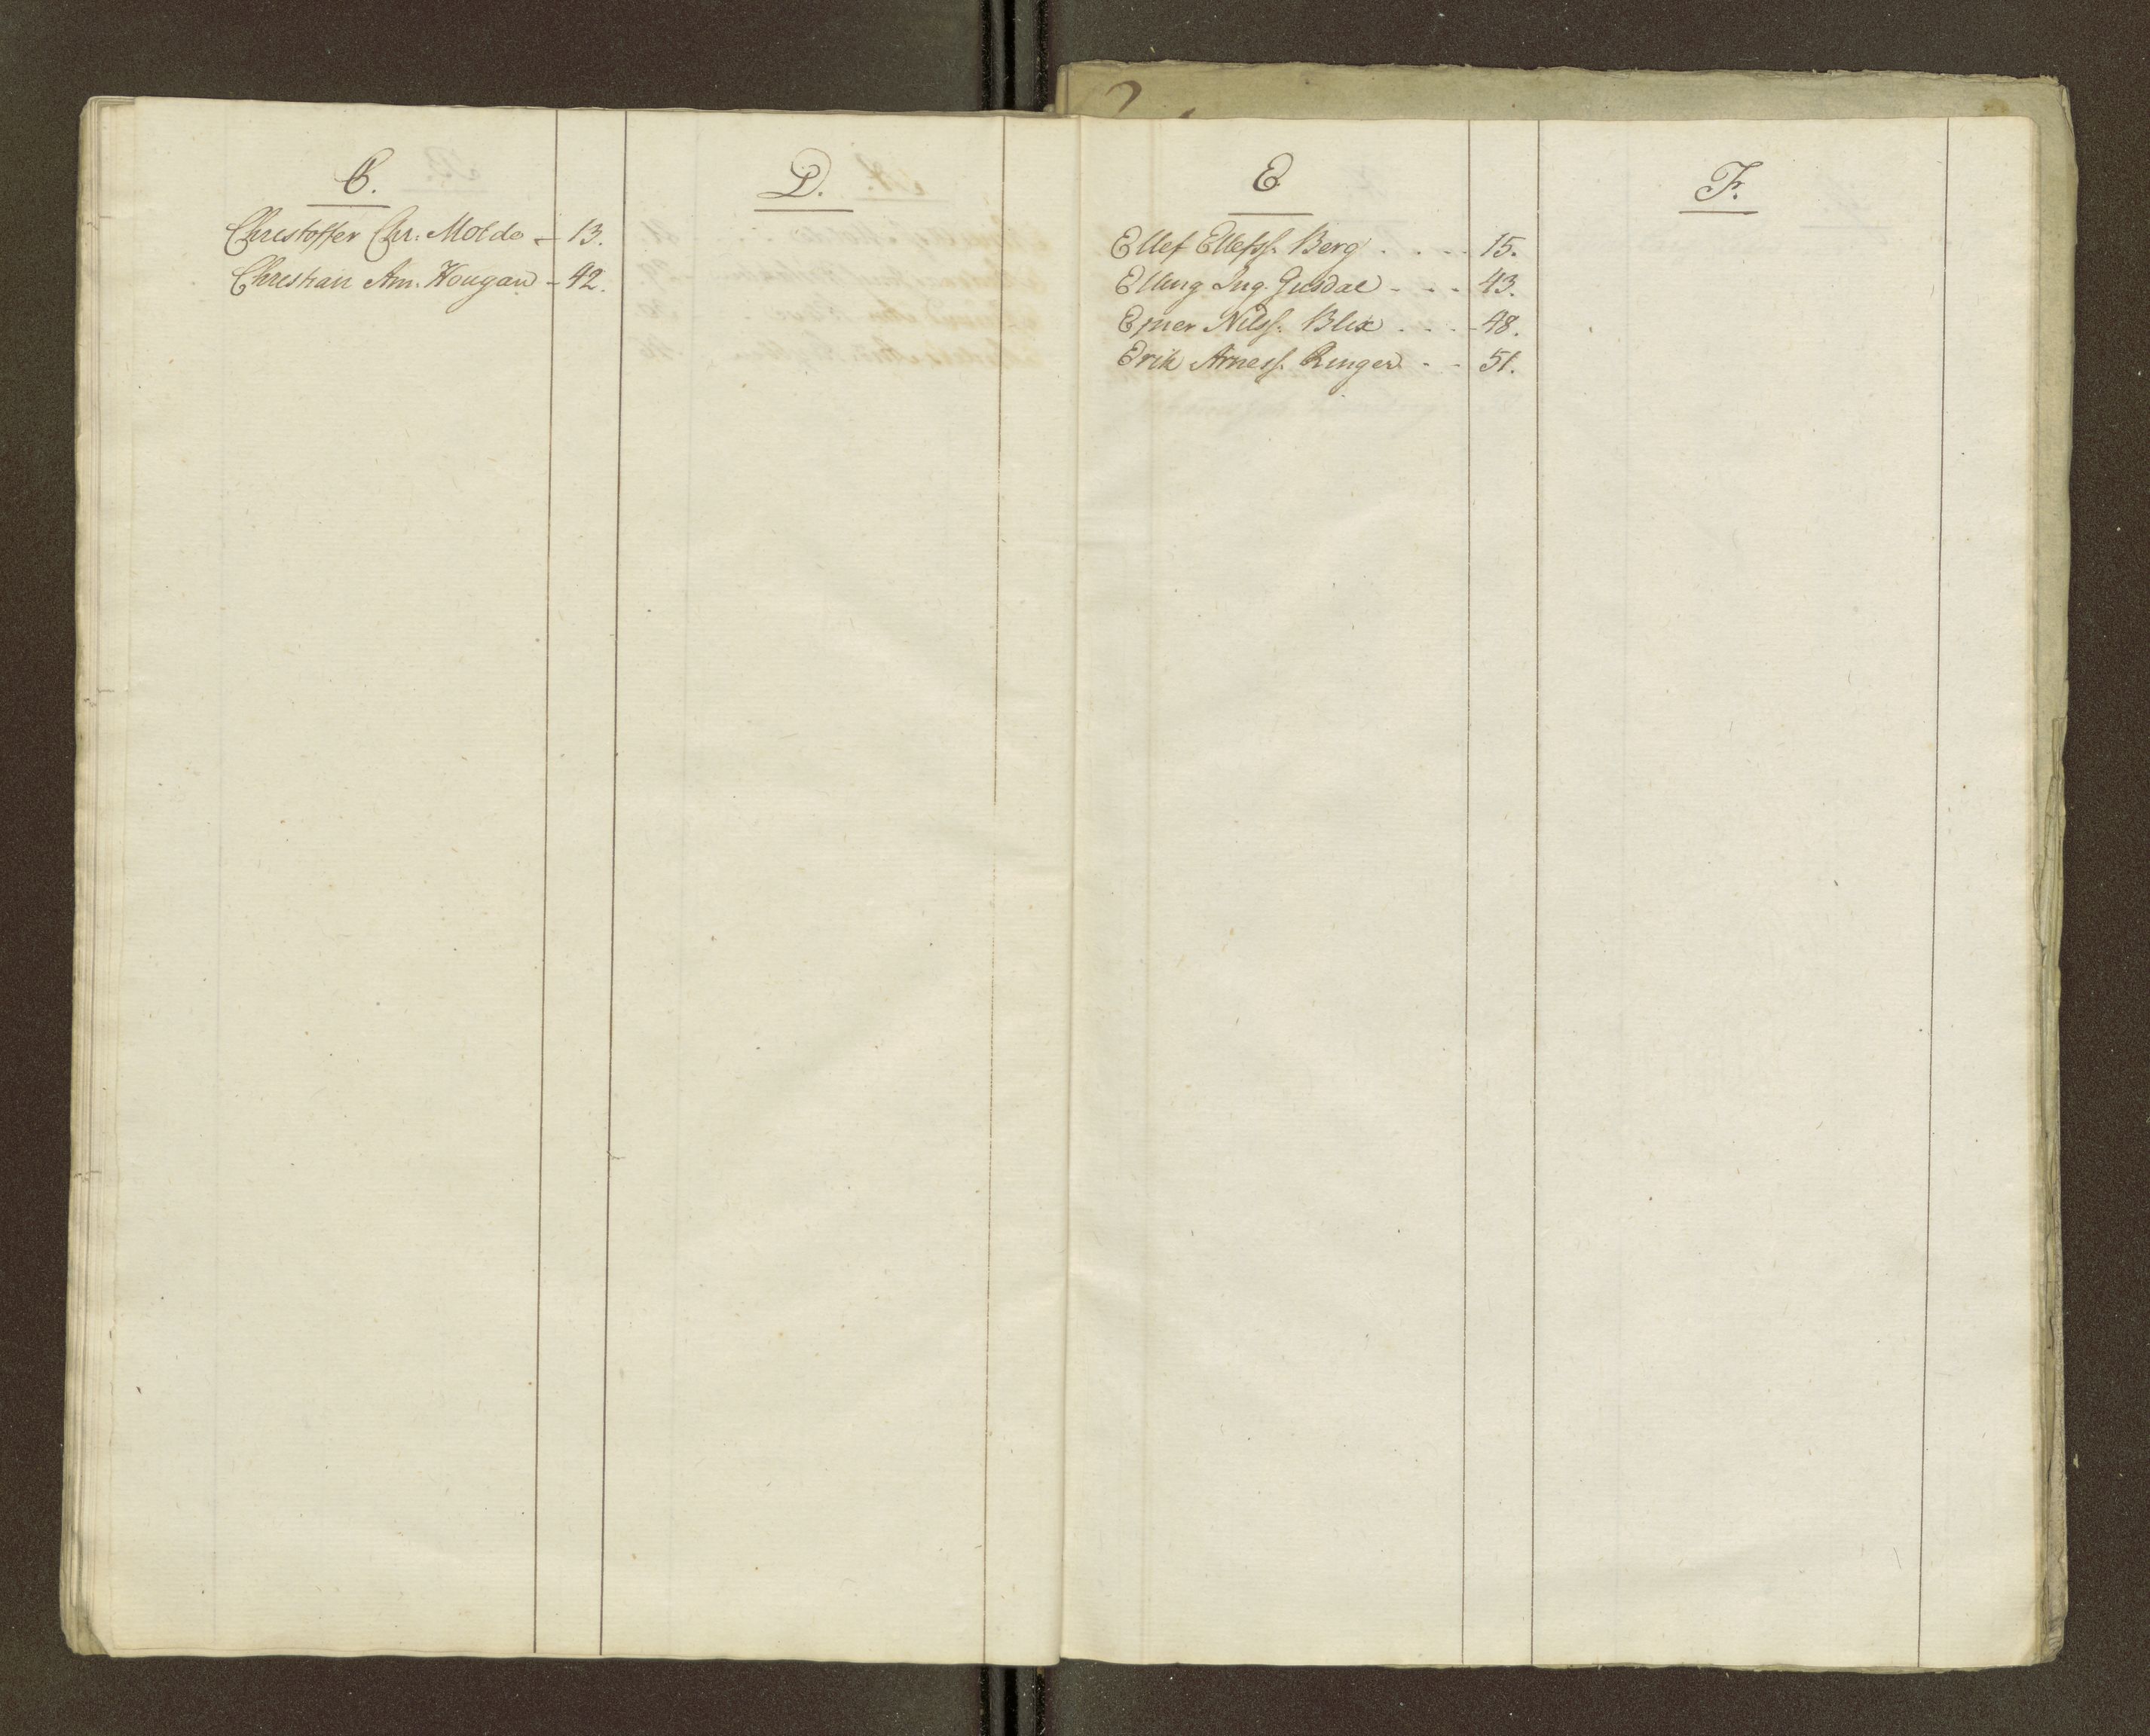 C.
Christoffer Chr. Molde - 13.
Christian Am. Hougan - 42.
D.
E
Ellef Ellefss. Berg . . . . 15.
Elling Ing. Gusdal - - - 43.
Ejner Nilss. Blix . . . 48.
Erik Arness. Ringer - - 51.
F.